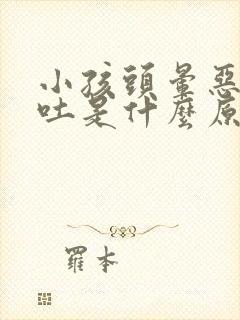 小孩頭暈惡
吐是什麼原
羅本